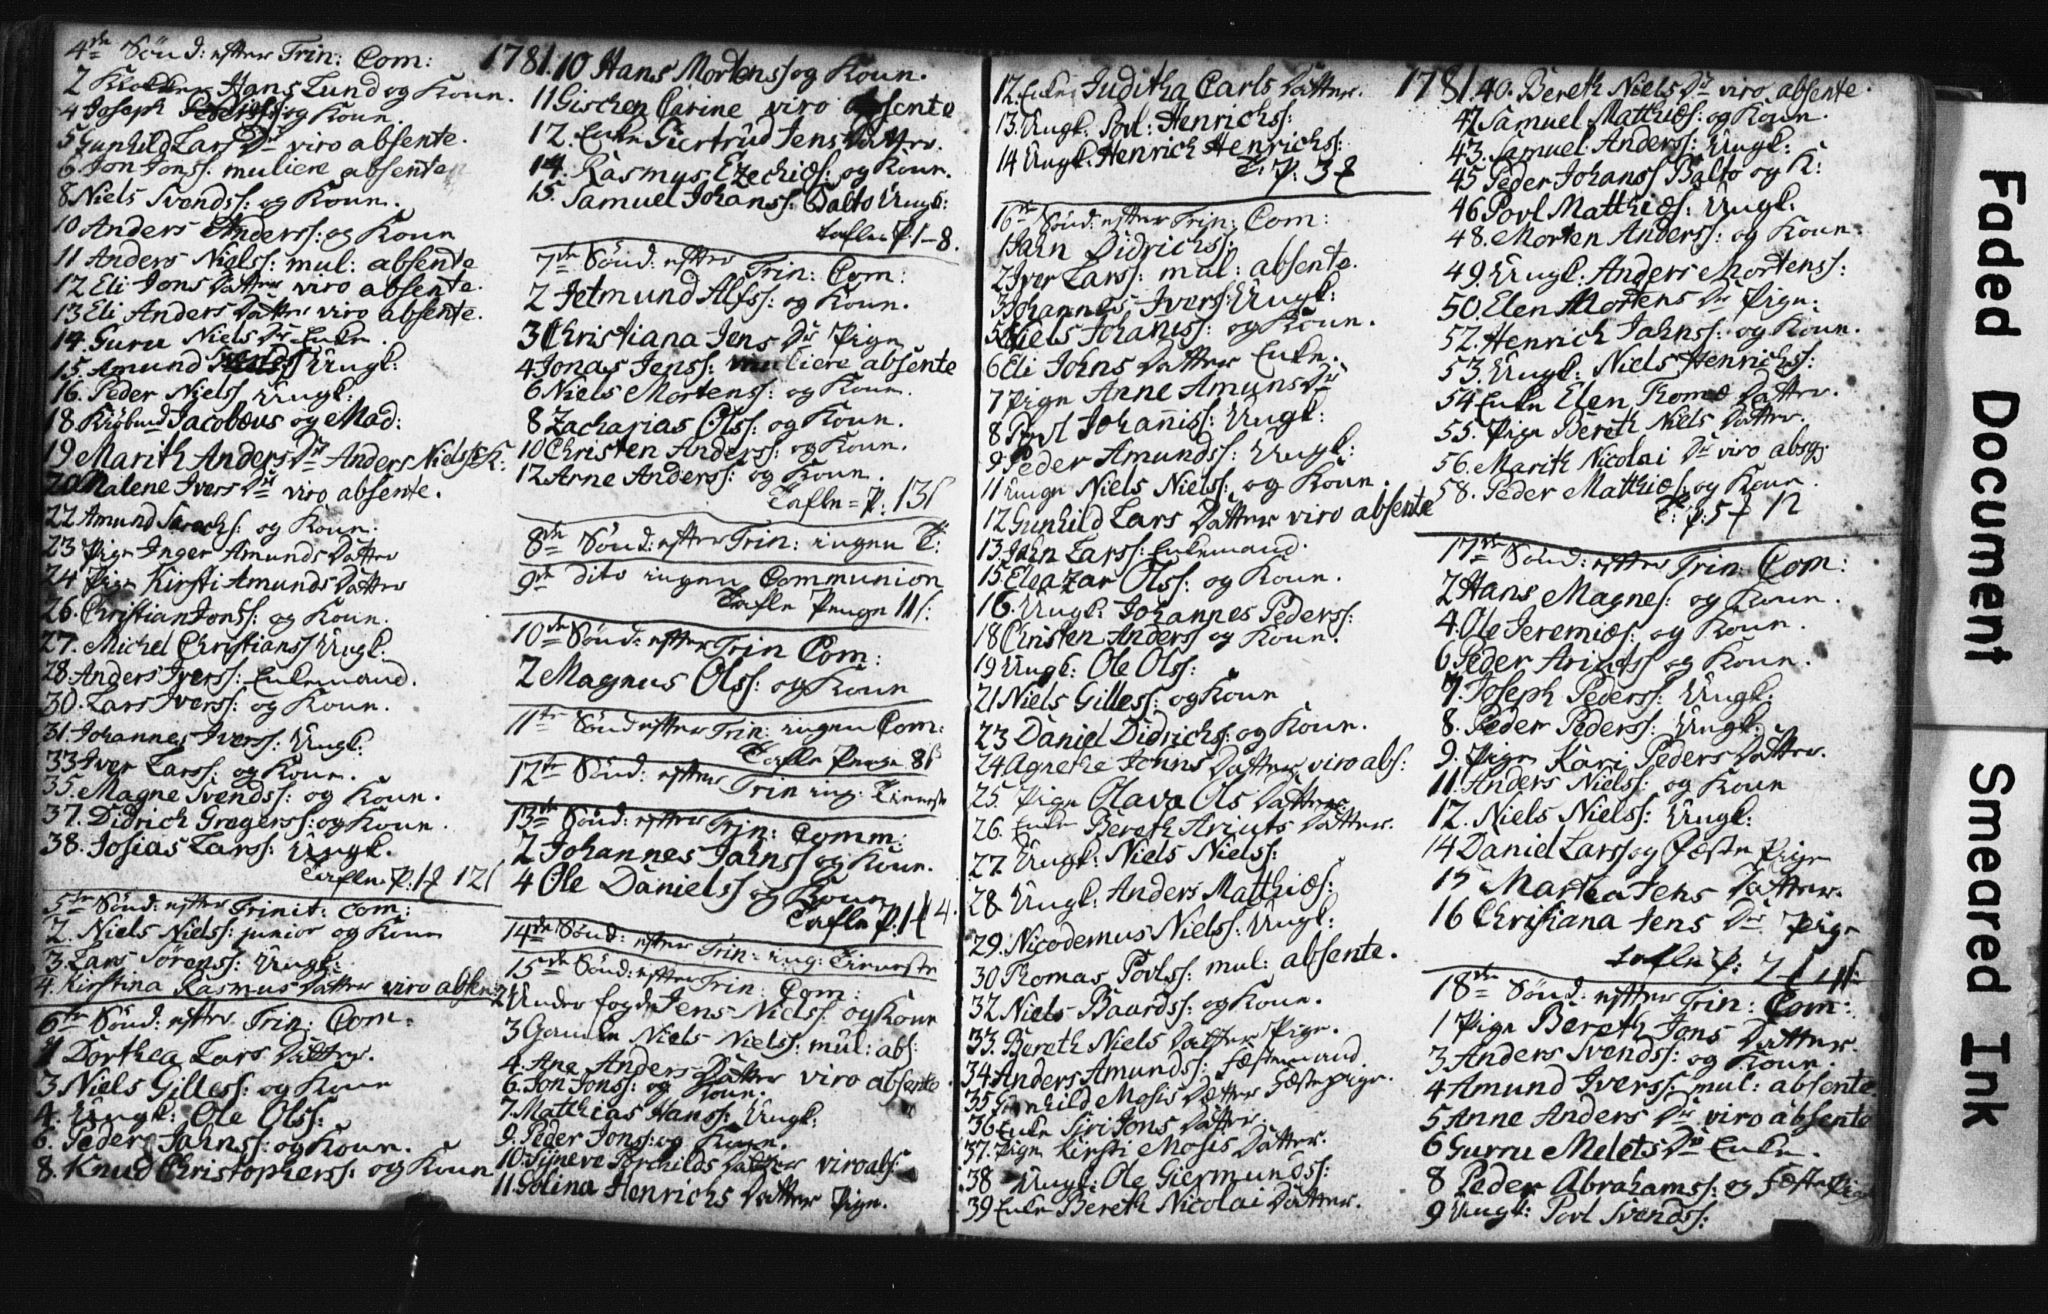 4de Sönd: efter Trin: Com:
2 Klokker Hans Lund og Kone.
4 Joseph Pederss: og Kone.
5 Gunhild Lars Dr viro absente.
6 Jon Jonss: muliere absente
8 Niels Svendss: og Kone.
10 Anders Anderss: og Kone
11 Anders Nielss: mul: absente
12 Eli Jons Datter viro absente.
13 Eli Anders Datter viro absente.
14. Guru Niels Dr Enke.
15. Amund Ungk:
16. Peder Nielss Ungk:
18. Kiöbmd Jacobæus og Mad:
19 Marith Anders Dr Anders Nielss: K:
20 Malene Ivers Dr viro absente.
22 Amund og Kone.
23 Pige Inger Amunds Datter
24 Pige Kirsti Amunds Datter
26. Christian Jonss: og Kone.
27. Michel Christianss Ungk:
28. Anders Iverss: Enkemand.
30. Lars Iverss: og Kone.
31. Johannes Iverss: Ungk:
33 Iver Larss: og Kone.
35. Magne Svendss: og Kone.
37. Didrich Gregerss: og Kone.
38. Josias Larss: Ungk.
Tafle P. 1 12
5te Sönd: efter Trinit: Com:
2. Niels Nielss: junior og Kone
3. Lars Sörenss: Ungk:
4. Kirstina Rasmus Datter viro absen:
6te Sönd: efter Trin: Com:
1 Dorthea Lars Datter.
3 Niels Gilless: og Kone
4. Ungk: Ole Olss:
6. Peder Jahnss: og Kone.
8. Knud Christopherss: og Kone
1781.
10 Hans Mortenss og Kone.
11 Gischen Carine viro absente
12. Enke Giertrud Jens Datter.
14. Rasmus Ezechiæs: og Kone.
15. Samuel Johanss: Balto Ungk:
Tafle P: 1-8.
7de Sönd: efter Trin: Com:
2 Jetmund Alfss: og Kone.
3 Christiana Jens Dr Pige
4 Jonas Jenss: muliere absente
6 Niels Mortenss: og Kone.
8 Zacharias Olss: og Kone.
10 Christen Anderss: og Kone.
12 Arne Anderss: og Kone.
Tafle = P: 13
8de Sönd: efter Trin: ingen T:
9de dito ingen Communion
Tafle Penge 11
10de Sönd: efter Trin Com:
2 Magnus Olss: og Kone
11te Sönd efter Trin: ingen Com:
Tafle Penge 8
12te Sönd: efter Trin ing: Tieneste
13de Sönd: efter Trin: Comm:
2 Johannes Jahnss og Kone.
4 Ole Danielss og Kone
Tafle P: 1 4.
14de Sönd: efter Trin: ing: Tieneste
15de Sönd: efter Trin: Com:
2 Under fogde Jens Nielss: og Kone
3 Gamle Niels Nielss: mul: abs:
4. Ane Anders Datter viro absente
6. Jon Jonss: og Kone.
7. Matthias Hanss: Ungk:
9. Peder Jonss: og Kone.
10. Synneve Torchilds Datter viro abs:
11. Golina Henrichs Datter Pige.
12. Enke Juditha Carls Datter.
13. Ungk: Povl: Henrichss:
14 Ungk: Henrich Henrichss:
T: P: 3
16de Sönd: efter Trin: Com:
1 Jahn Didrichss:
2 Iver Larss: mul: absente.
3 Johannes Iverss: Ungk:
5 Niels Johaniss: og Kone.
6 Eli Johns Datter Enke.
7 Pige Anne Amuns Dr
8 Povl Johanniss: Ungk:
9 Peder Amundss: Ungk:
11 Unge Niels Nielss: og Kone.
12 Gunhild Lars Datter viro absente
13. Jahn Larss: Enkemand.
15. Eleazar Olss: og Kone.
16. Ungk: Johannes Pederss:
18 Christen Anderss og Kone.
19 Ungk: Ole Olss:
21 Niels Gilless: og Kone
23 Daniel Didrichs: og Kone.
24 Agnethe Johns Datter viro abs:
25. Pige Olava Ols Datter.
26. Enke Bereth Arints Datter.
27. Ungk: Niels Nielss:
28 Ungk: Anders Matthiæs:
29. Nicodemus Nielss: Ungk:
30 Thomas Povlss: mul: absente.
32 Niels Baardss: og Kone.
33. Bereth Niels Datter Pige.
34 Anders Amundss: Fæstemand
35 Gunhild Mosis Datter Fæstepige.
36 Enke Siri Jons Datter.
37. Pige Kirsti Mosis Datter.
38 Ungk: Ole Giermundss:
39 Enke Bereth Nicolai Datter.
1781.
40. Bereth Niels Dr viro absente.
42 Samuel Matthiæs: og Kone.
43. Samuel Anderss: Ungk:
45 Peder Johanss Balto og K:
46 Povl Matthiæs: Ungk:
48. Morten Anderss: og Kone.
49. Ungk: Anders Mortenss:
50. Elen Mortens Dr Pige:
52. Henrich Jahnss: og Kone.
53. Ungk: Niels Henrichss:
54 Enke Elen Thomæ Datter.
55. Pige Bereth Niels Datter.
56. Marith Nicolai Dr viro abs:
58. Peder Matthiæs: og Kone
T: P: 5 12
17de Sönd: efter Trin: Com:
2 Hans Magnes: og Kone.
4. Ole Jeremiæs: og Kone.
6 Peder Arintss og Kone.
7. Joseph Pederss: Ungk:
8. Peder Pederss: Ungk:
9. Pige Kari Peders Datter.
11. Anders Nielss: og Kone
12. Niels Nielss: Ungk:
14 Daniel Larss og Fæste Pige
15 Martea Jens Datter.
16 Christiana Jens Dr Pige
Tafle P: 2
18de Sönd: efter Trin: Com:
1 Pige Bereth Jons Datter.
3 Anders Svendss: og Kone.
4 Amund Iverss: mul: absente
5 Anne Anders Dr viro absente
6 Gurru Melets Dr Enke.
8 Peder Abrahamss: og Fæste Pige
9 Ungk: Povl Svendss:
Faded Document
Smeared Ink